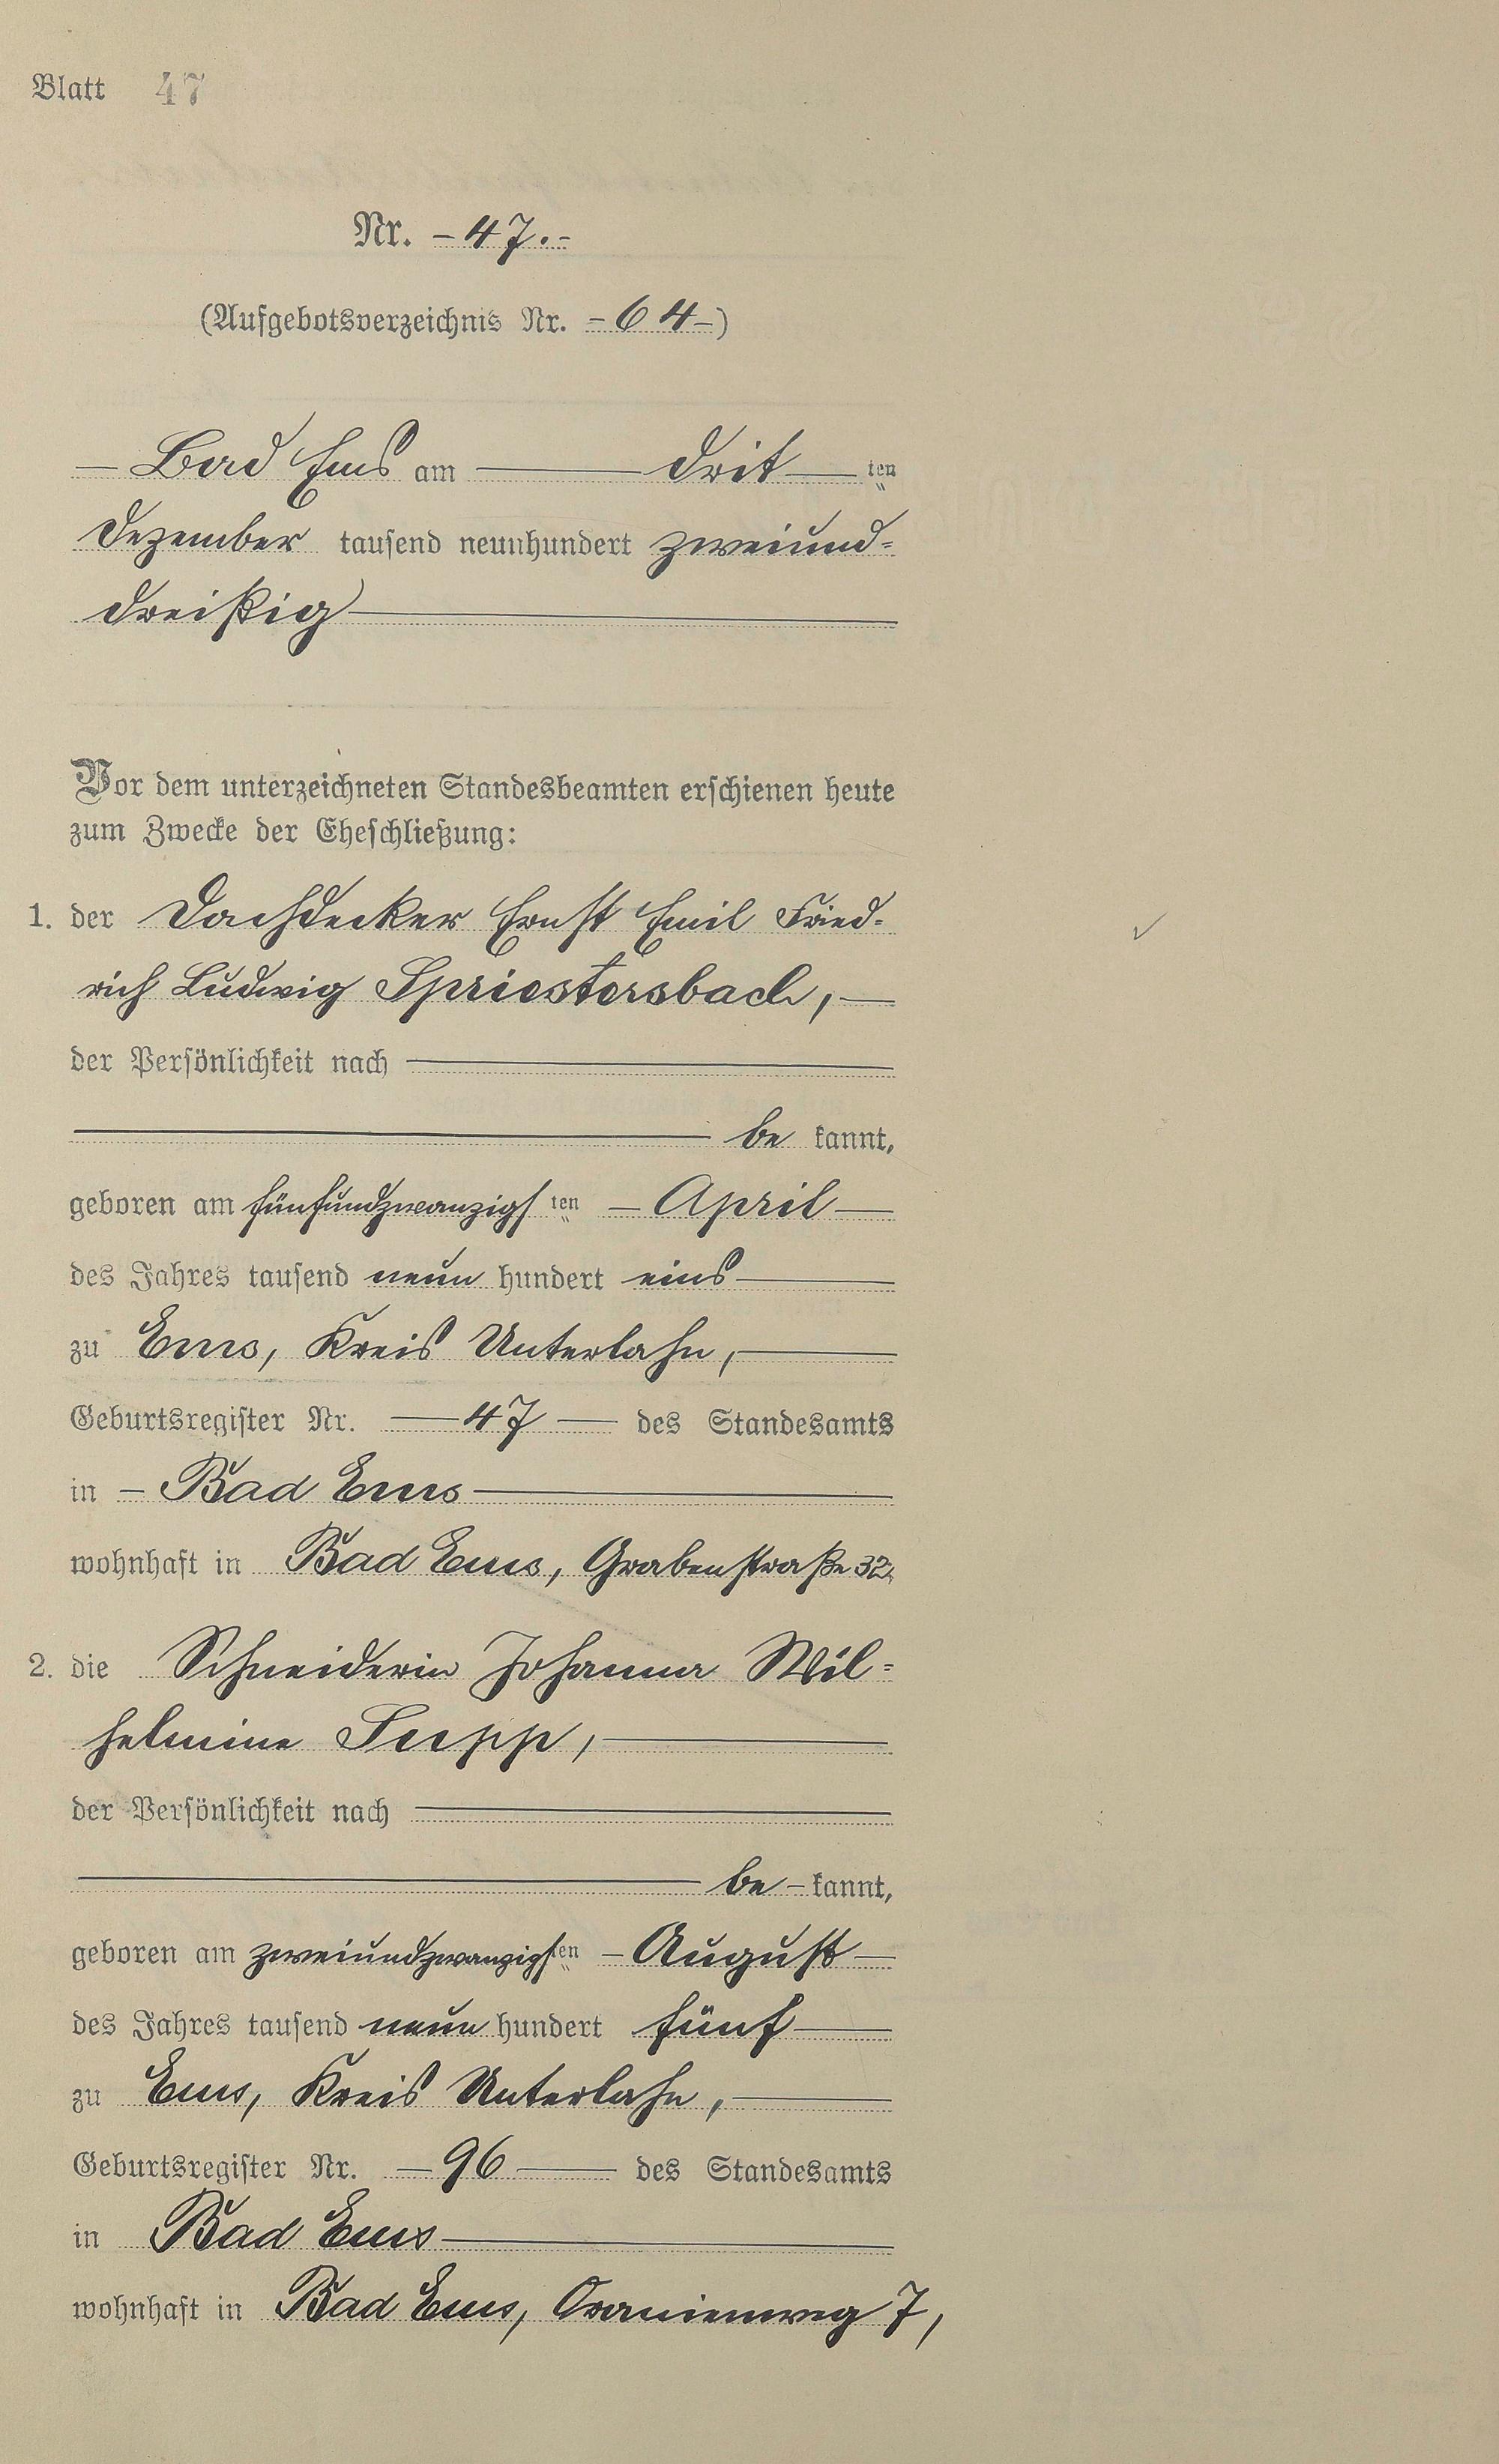 Blatt 47
Nr. – 47. –
(Aufgebotsverzeichnis Nr. – 64 –)
– Bad Ems am — drit — ten
Dezember tausend neunhundert zweiund=
dreißig —
Vor dem unterzeichneten Standesbeamten erschienen heute
zum Zwecke der Eheschließung:
1. der Dachdecker Ernst Emil Fried=
rich Ludwig Spriestersbach, —
der Persönlichkeit nach —
— be kannt,
geboren am fünfundzwanzigsten – April —
des Jahres tausend neun hundert eins —
zu Ems, Kreis Unterlahn, —
Geburtsregister Nr. — 47 — des Standesamts
in – Bad Ems —
wohnhaft in Bad Ems, Grabenstraße 32,
2. die Schneiderin Johanna Wil=
helmine Supp, —
der Persönlichkeit nach —
— be – kannt,
geboren am zweiundzwanzigsten – August —
des Jahres tausend neun hundert fünf —
zu Ems, Kreis Unterlahn, —
Geburtsregister Nr. — 96 — des Standesamts
in Bad Ems —
wohnhaft in Bad Ems, Oranienweg 7,